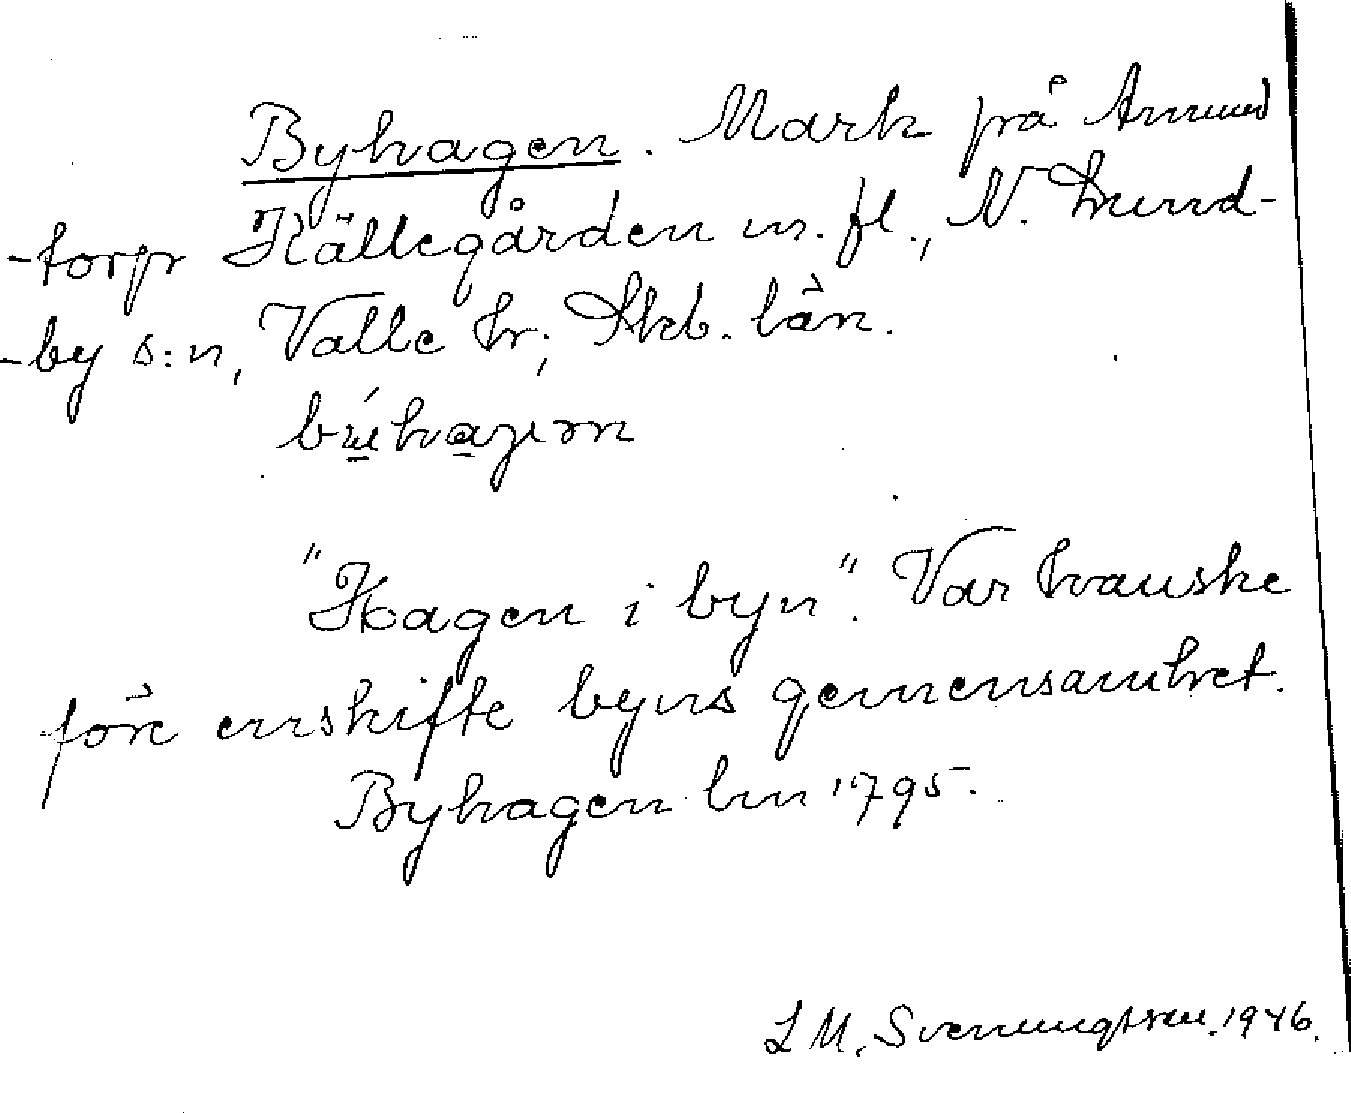 Byhagen. Mark på Amund
-torp Källegården m. fl., N. Lund-
-by s:n, Valle hr; Skb. län.
"Hagen i byn". Var kanske
före enskifte byns gemensamhet.
Byhagen lm 1795.
L M. Svenungsson. 1946.